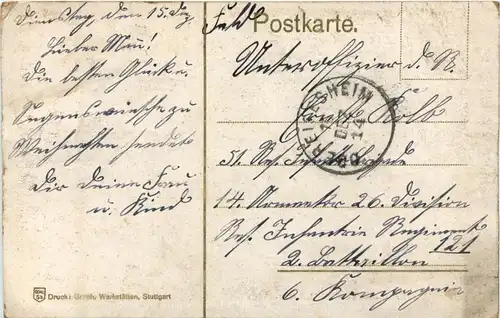 Dienstag, den 15. Dez.
Lieber Man!
Die besten Glück u.
Segenswünsche zu
Weihnachten sendet
Dir Deine Frau
u. Kind
Druck: Graph. Werkstätten, Stuttgart
Feld Postkarte.
Unteroffizier d. R.
Ernst Kolb
OBERRIEXINGSHEIM
51. Res. Inf. Brigade
14. Armeekor 26. Division
Res. Infanterie Regiment
121
2. Battaillon
6. Kompagnie